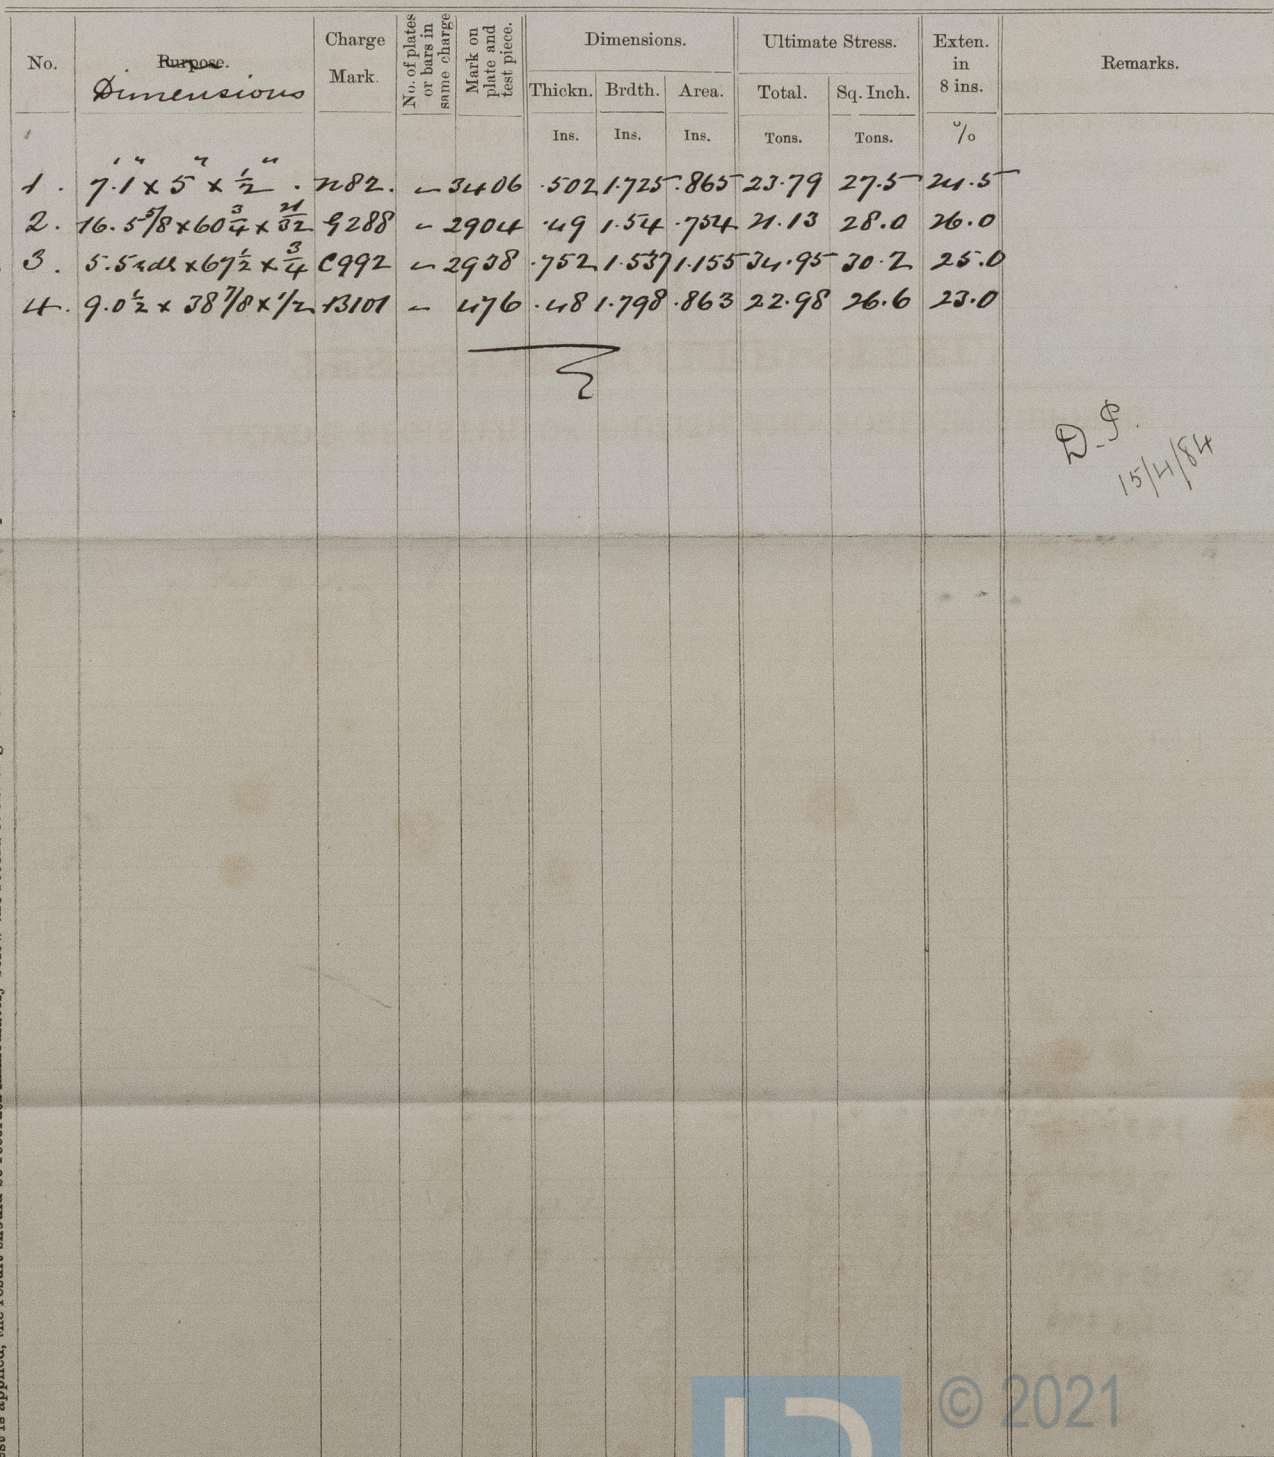 No.
Purpose.
Dimensions
Charge
Mark.
No. of plates
or bars in
same charge
Mark on
plate and
test piece.
Dimensions.
Thickn. Brdth. Area.
Ins. Ins. Ins.
Ultimate Stress.
Total. Sq. Inch.
Tons. Tons.
Exten.
in
8 ins.
%
Remarks.
1. 7'.1" x 5" x 1/2". n82. " 3406 .502 1.725 .865 23.79 27.5 24.5
2. 16.5 5/8 x 60 3/4 x 21/32 G288 " 2904 .49 1.54 .754 21.13 28.0 26.0
3. 5.5 x 67 1/2 x 3/4 C992 " 2938 .752 1.537 1.155 34.95 30.2 25.0
4. 9.0 1/2 x 38 7/8 x 1/2 B101 " 476 .48 1.798 .863 22.98 26.6 23.0
D.P.
15/4/84
© 2021